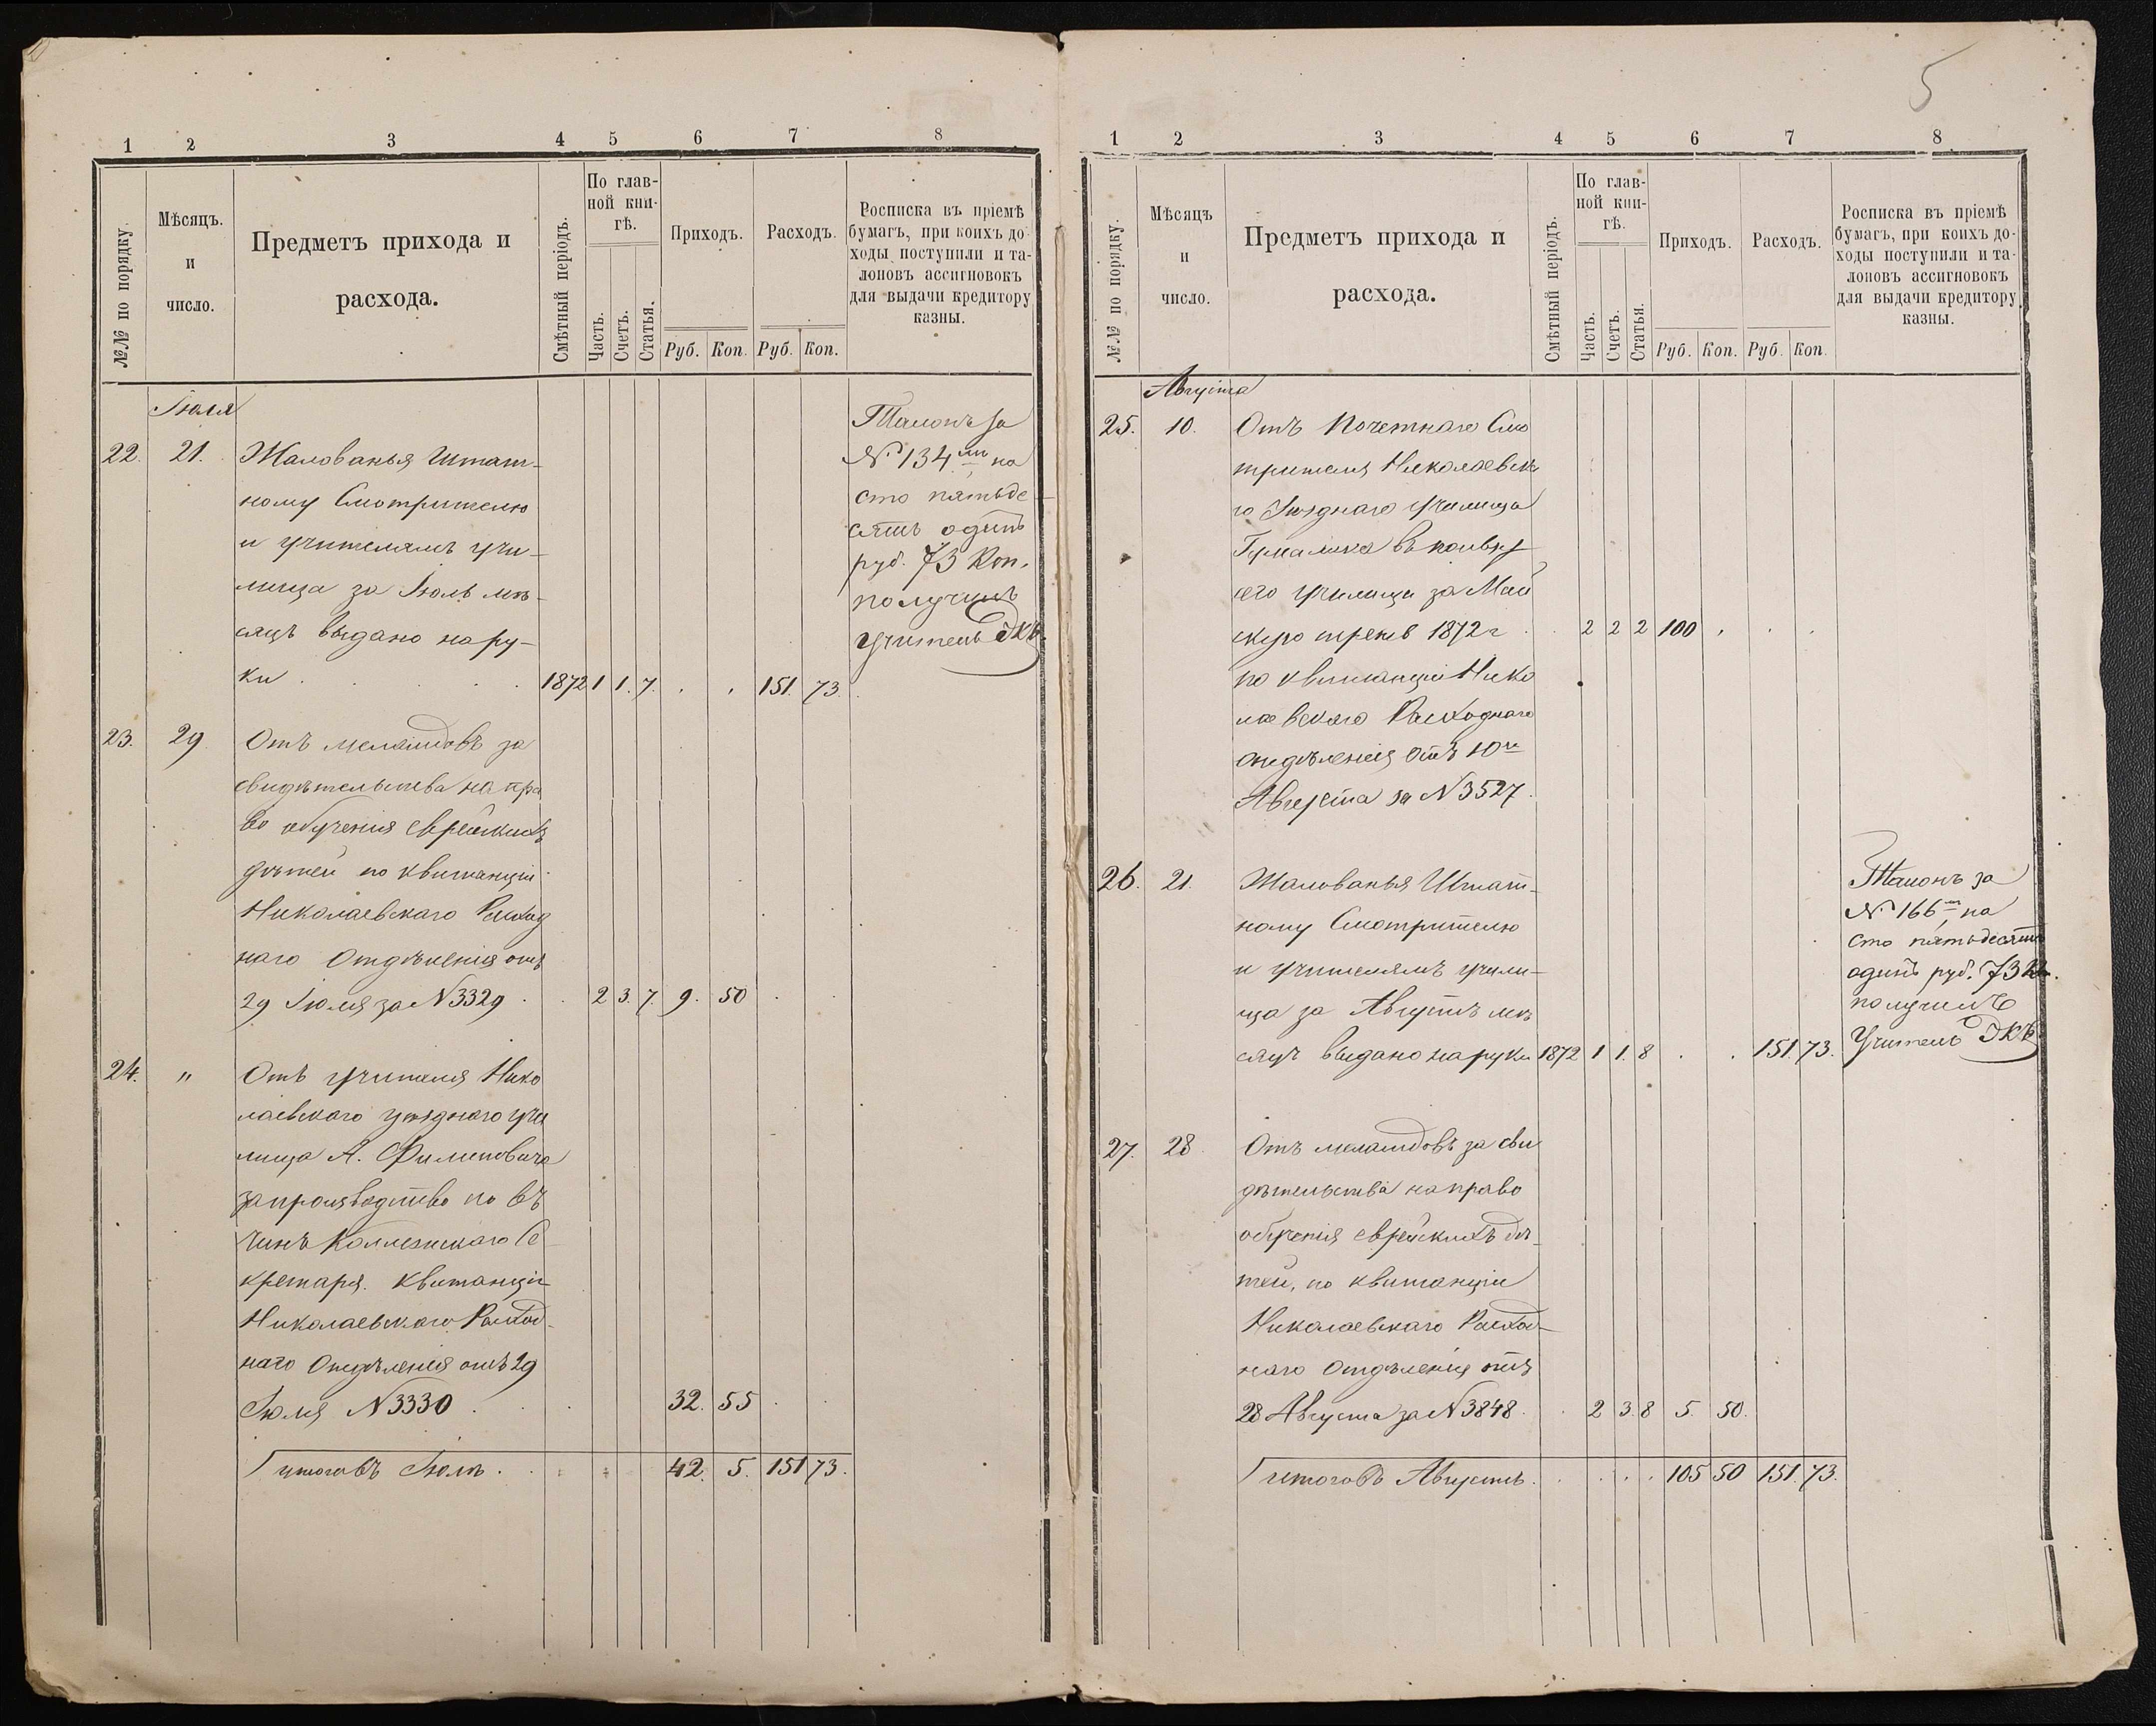 5
1 2 3 4 5 6 7 8
№№ по порядку.
Мѣсяцъ.
и
число.
Предметъ прихода и
расхода.
Смѣтный періодъ.
По глав-
ной кни-
гѣ.
Часть.
Счетъ.
Статья.
Приходъ.
Руб. Коп.
Расходъ.
Руб. Коп.
Росписка въ пріемѣ
бумагъ, при коихъ до-
ходы поступили и та-
лоновъ ассигновокъ
для выдачи кредитору
казны.
Іюля
22. 21. Жалованья Штат-
ному Смотрителю
и учителямъ учи-
лища за Іюль мѣ-
сяцъ выдано на ру-
ки 1872 1 1. 7. 151. 73.
Талонъ за
№ 134 на
сто пятьде-
сятъ одинъ
руб. 73 коп.
получилъ
Учитель
23. 29 Отъ меламдовъ за
свидѣтельства на пра
во обученія еврейскихъ
дѣтей по квитанціи
Николаевскаго Расход
наго Отдѣленія отъ
29 Іюля за № 3329 2 3. 7. 9. 50
24. " Отъ учителя Нико
лаевскаго уѣзднаго учи
лища А. Филиповича
за производство по въ
чинъ Коллежскаго Се
кретаря. квитанціи
Николаевскаго Расход-
наго Отдѣленія отъ 29
Іюля № 3330 32. 55
Итого въ Іюлѣ 42. 5. 151 73.
1 2 3 4 5 6 7 8
№№ по порядку.
Мѣсяцъ
и
число.
Предметъ прихода и
расхода.
Смѣтный періодъ.
По глав-
ной кни-
гѣ.
Часть.
Счетъ.
Статья.
Приходъ.
Руб. Коп.
Расходъ.
Руб. Коп.
Росписка въ пріемѣ
бумагъ, при коихъ до-
ходы поступили и та-
лоновъ ассигновокъ
для выдачи кредитору
казны.
Августа
25. 10. Отъ Почетнаго Смо
трителя Николаевска
го Уѣзднаго училища
въ пользу
сего училища за Май
скую треть 1872 г 2 2 2 100
по квитанціи Нико
лаевскаго Расходнаго
отдѣленія отъ 10го
Августа за № 3527.
26. 21. Жалованья Штат-
ному Смотрителю
и учителямъ учили-
ща за Августъ мѣ
сяцъ выдано на руки 1872 1 1. 8 151. 73.
Талонъ за
№ 166 на
сто пятьдесятъ
одинъ руб. 73 к.
получилъ
Учитель
27. 28 Отъ меламдовъ за сви
дѣтельства на право
обученія еврейскихъ дѣ-
тей, по квитанціи
Николаевскаго Расход-
наго отдѣленія отъ
28 Августа за № 3848 2 3. 8 5. 50.
Итого въ Августѣ 105 50 151. 73.